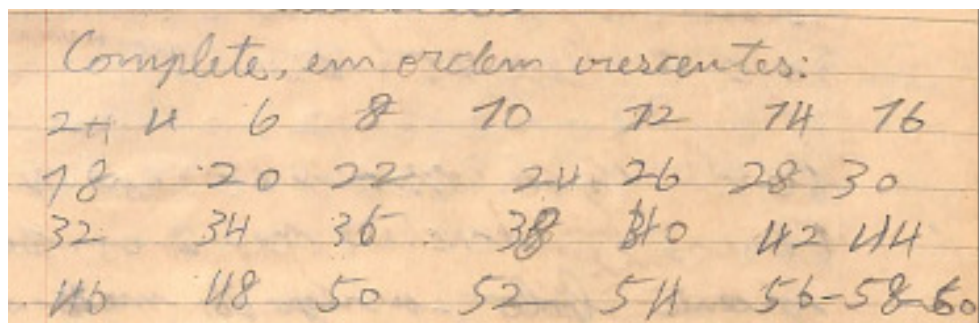 Complete, em ordem crescentes:
2 4 6 8 10 12 14 16
18 20 22 24 26 28 30
32 34 36 38 40 42 44
46 48 50 52 54 56-58-60